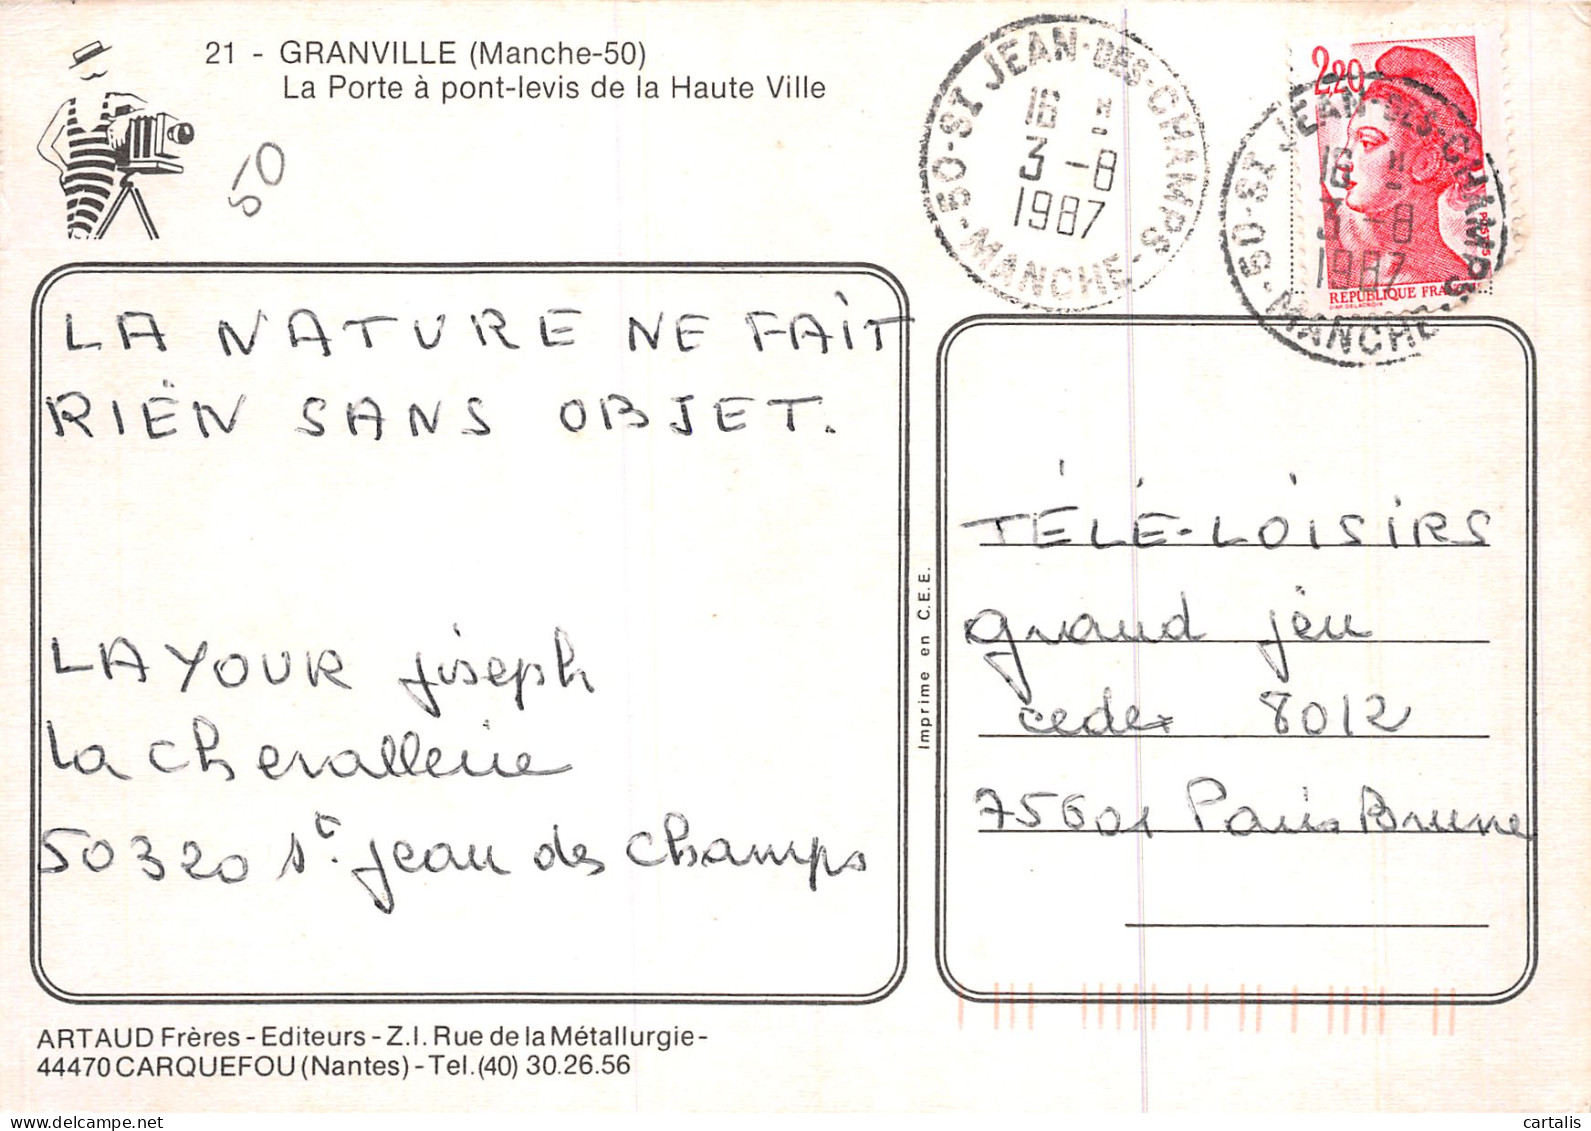 21 - GRANVILLE (Manche-50)
La Porte à pont-levis de la Haute Ville
50
50-ST JEAN-DES-CHAMPS
16 H
3 -8
1987
-MANCHE-
2,20
50-ST JEAN-DES-CHAMPS
16 H
3 -8
1987
-MANCHE-
POSTES
REPUBLIQUE FRAN
LA NATURE NE FAIT
RIEN SANS OBJET.
LAYOUR joseph
La Chevallerie
50320 St. jean des Champs
Imprimé en C.E.E.
TÉLÉ-LOISIRS
grand jeu
cedex 8012
75601 Paris Brune
ARTAUD Frères - Editeurs - Z.I. Rue de la Métallurgie -
44470 CARQUEFOU (Nantes) - Tel. (40) 30.26.56
cartalis